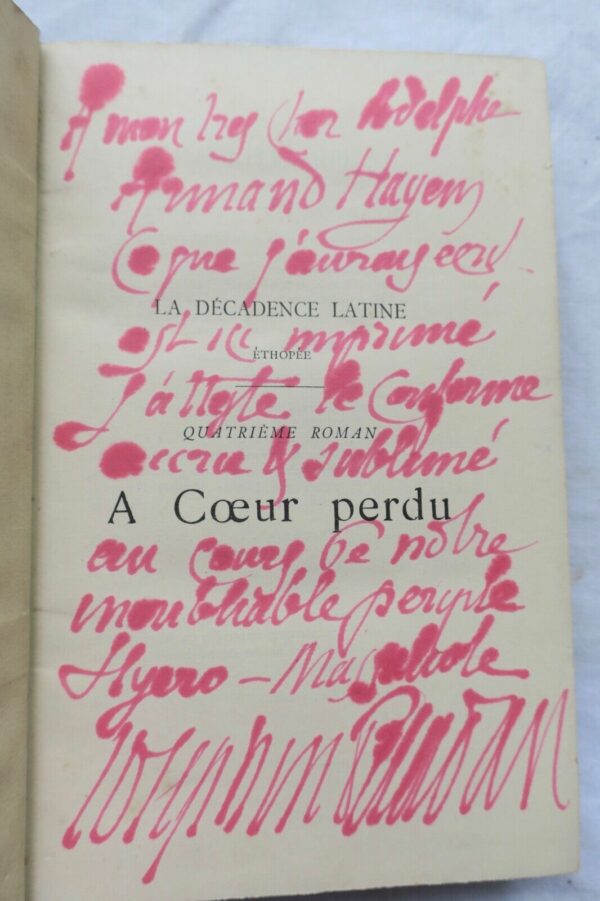 A mon très cher Adolphe
Armand Hayem
Ce que j'aurays écrit
LA DÉCADENCE LATINE
est ici imprimé
ÉTHOPÉE
J'atteste le conforme
QUATRIÈME ROMAN
accru & sublimé
A Cœur perdu
au cours de nôtre
inoubliable périple
Hyero-
Joséphin Péladan